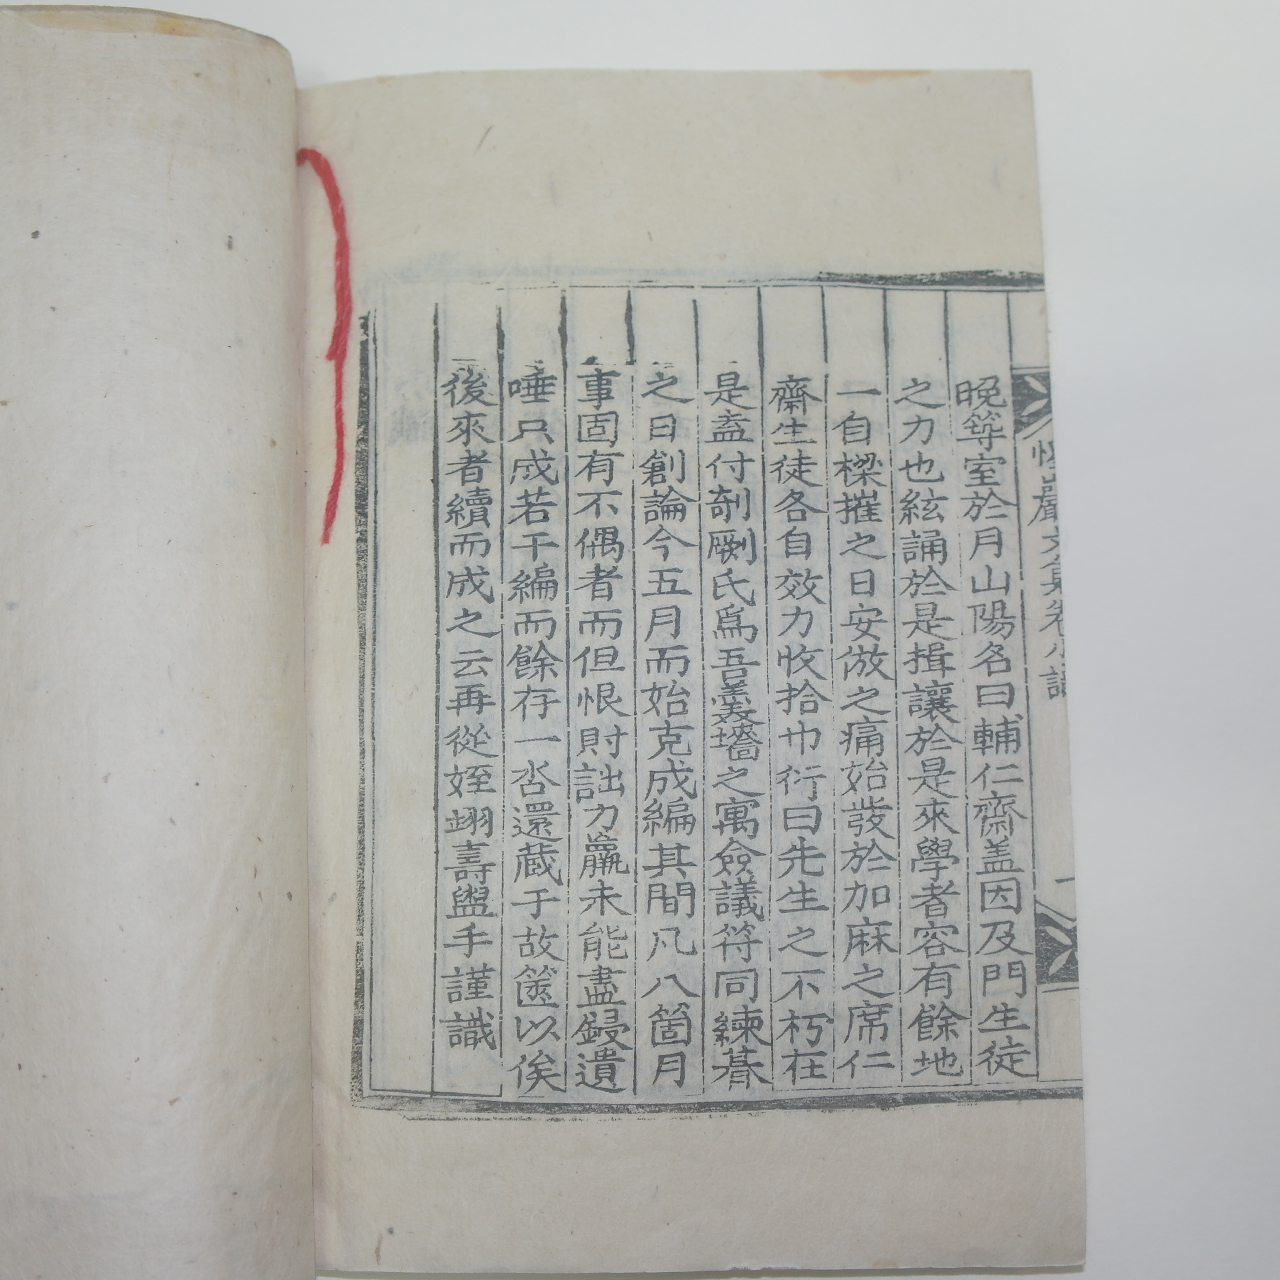 巖文集卷小識
晩築室於月山陽名曰輔仁齋盖因及門生徒
之力也絃誦於是揖讓於是來學者容有餘地
一自樑摧之日安倣之痛始發於加麻之席仁
齋生徒各自效力收拾巾衍曰先生之不朽在
是盍付剞劂氏爲吾羹墻之寓僉議符同練朞
之日創論今五月而始克成編其間凡八箇月
事固有不偶者而但恨財詘力羸未能盡鋟遺
唾只成若干編而餘存一呇還藏于故篋以俟
後來者續而成之云再從姪翊壽盥手謹識